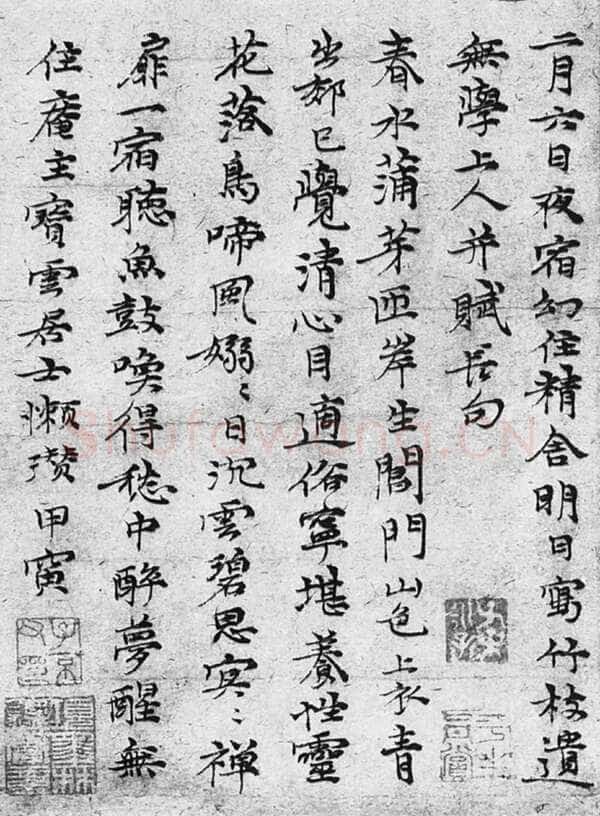 二月六日夜宿幻住精舍明日寫竹枝遺
無學上人并賦長句
春水蒲芽匝岸生閶門山色上衣青
出郊已覺清心目適俗寧堪養性靈
花落鳥啼風嫋〻日沉雲碧思冥〻禅
扉一宿聴魚鼓喚得愁中醉夢醒無
住庵主寶雲居士懶瓚甲寅
Shufawang.CN